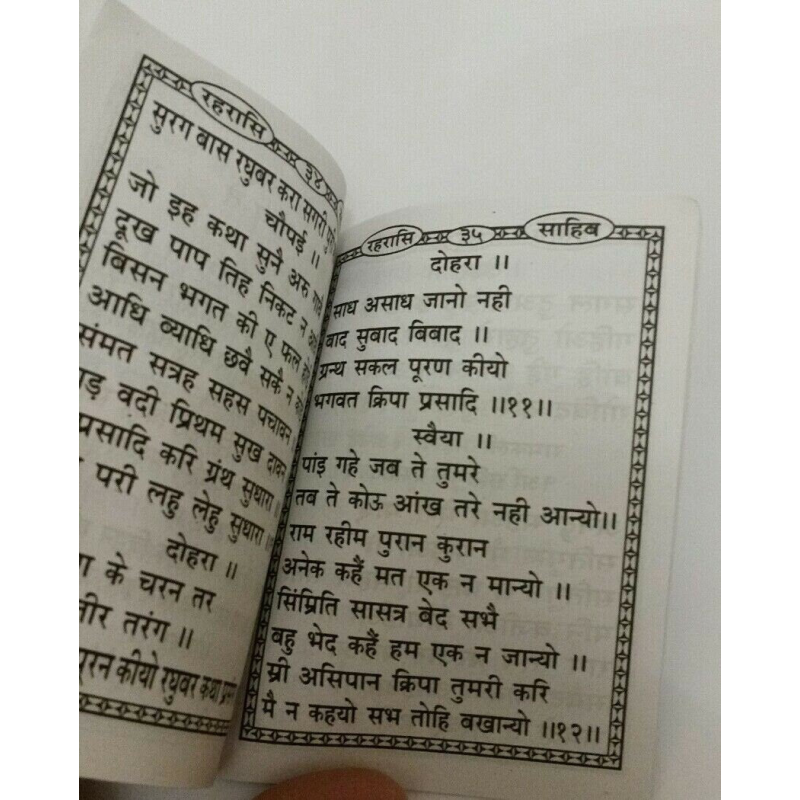 रहरासि ३४
सुरग बास रघुबर करा सगरी
चौपई ॥
जो इह कथा सुनै अरु
दूख पाप तिह निकट न
बिसन भगत की ए फल
आधि ब्याधि छवै सकै न
संमत सत्रह सहस पचावन
वदी प्रिथम सुख दावन
प्रसादि करि ग्रंथ सुधारा।
परी लहु लेहु सुधारा॥
दोहरा ॥
के चरन तर
तीर तरंग ॥
कीयो रघुबर कथा
रहरासि ३५ साहिब
दोहरा ॥
साध असाध जानो नही
बाद सुबाद बिवाद ॥
ग्रन्थ सकल पूरण कीयो
भगवत क्रिपा प्रसादि ॥११॥
स्वैया ॥
पांइ गहे जब ते तुमरे
तब ते कोऊ आंख तरे नही आन्यो॥
राम रहीम पुरान कुरान
अनेक कहैं मत एक न मान्यो ॥
सिंम्रिति सासत्र बेद सभै
बहु भेद कहैं हम एक न जान्यो ॥
स्री असिपान क्रिपा तुमरी करि
मै न कहयो सभ तोहि बखान्यो ॥१२॥